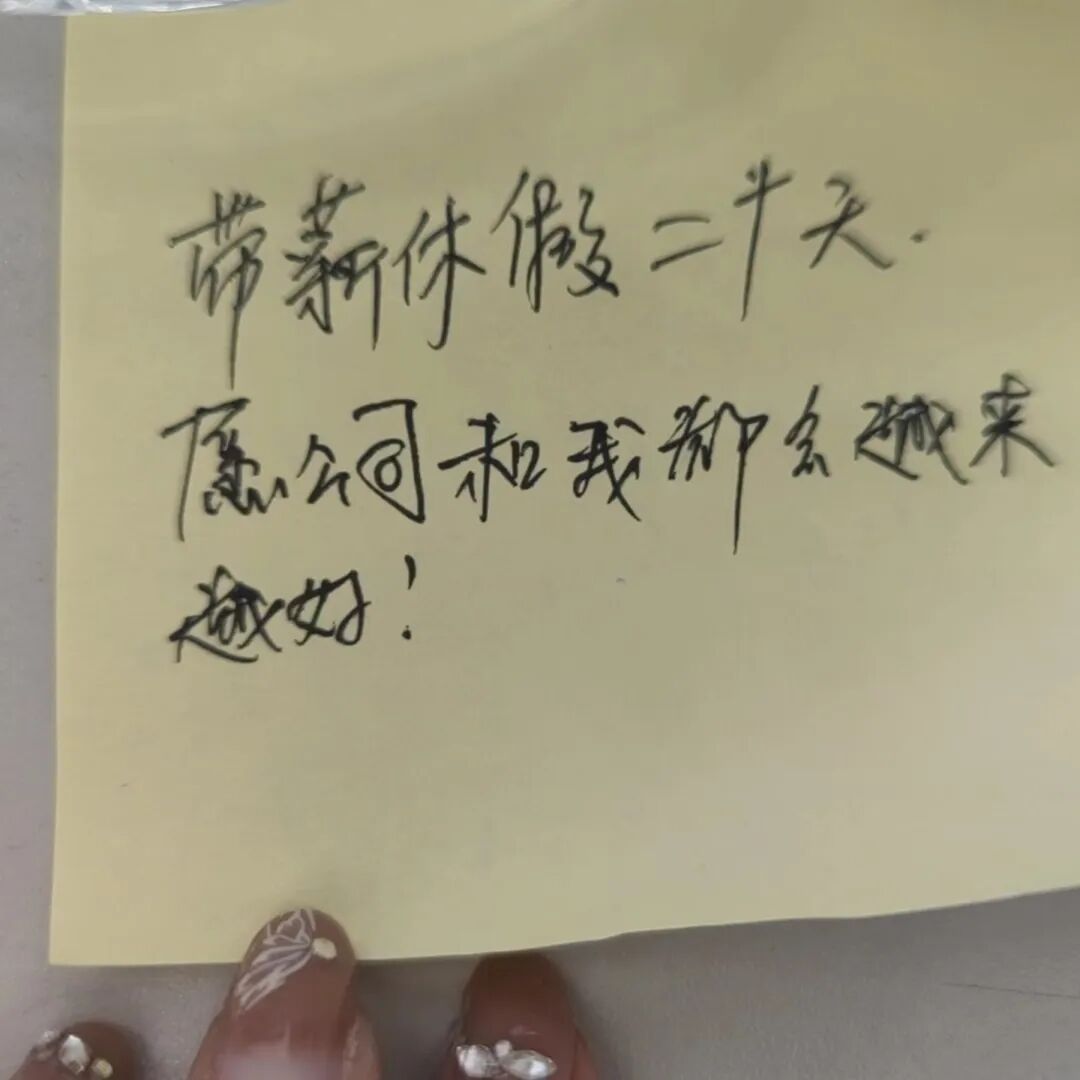 带薪休假二十天.
愿公司和我都会越来
越好！